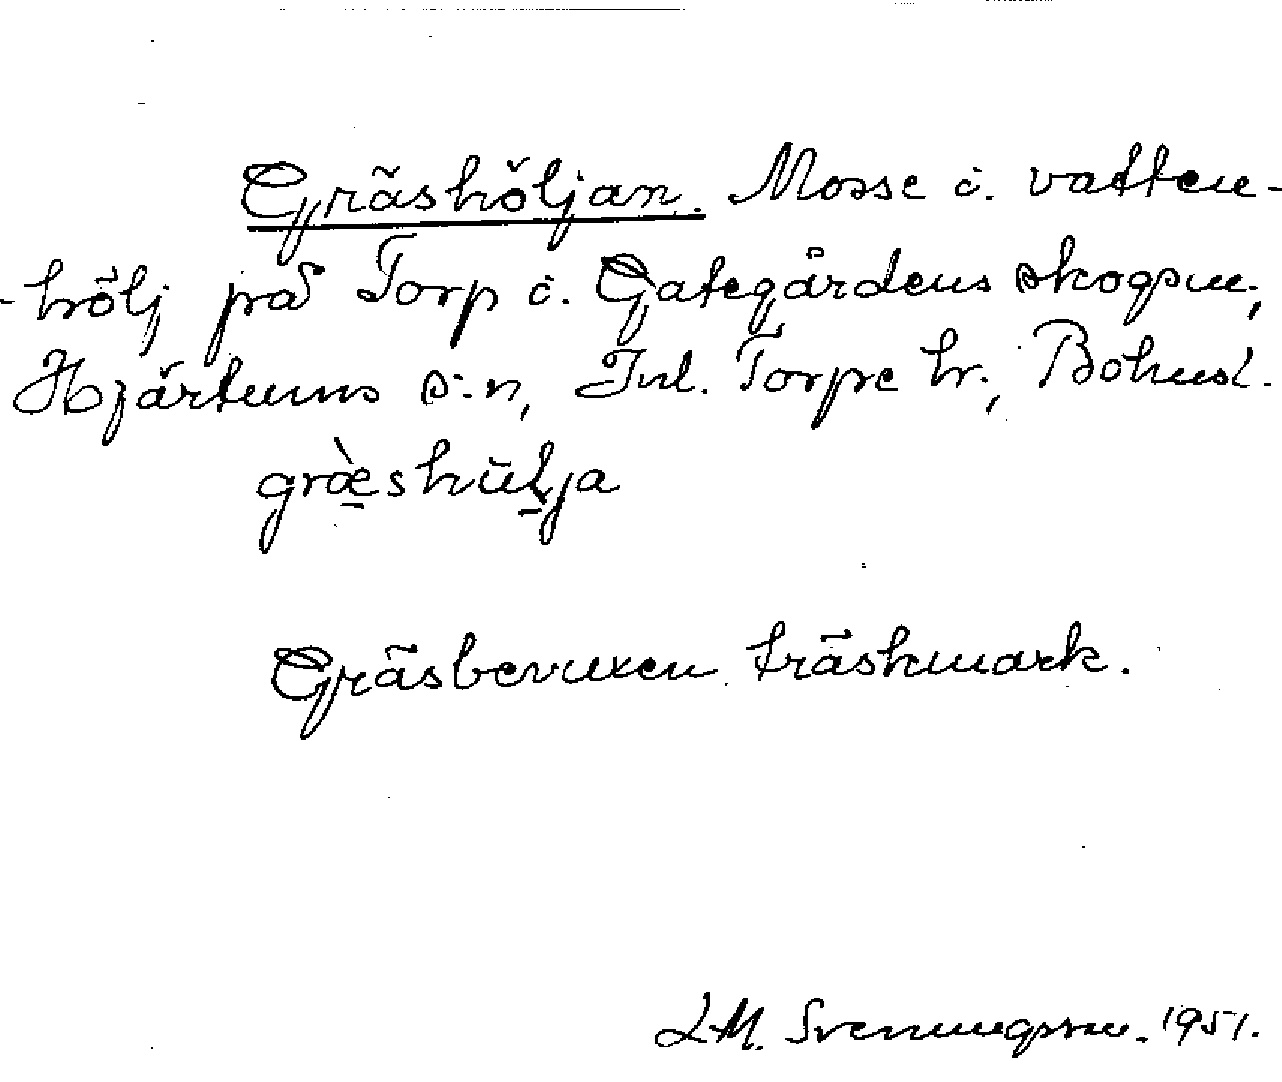 Gräshöljan. Mosse i. vatten-
-hölj på Torp i. Gategårdens skogsm.,
Hjärtums s:n, Inl. Torpe hr., Bohusl.
græshulja
Gräsbevuxen träskmark.
L.M. Svenungsson. 1951.